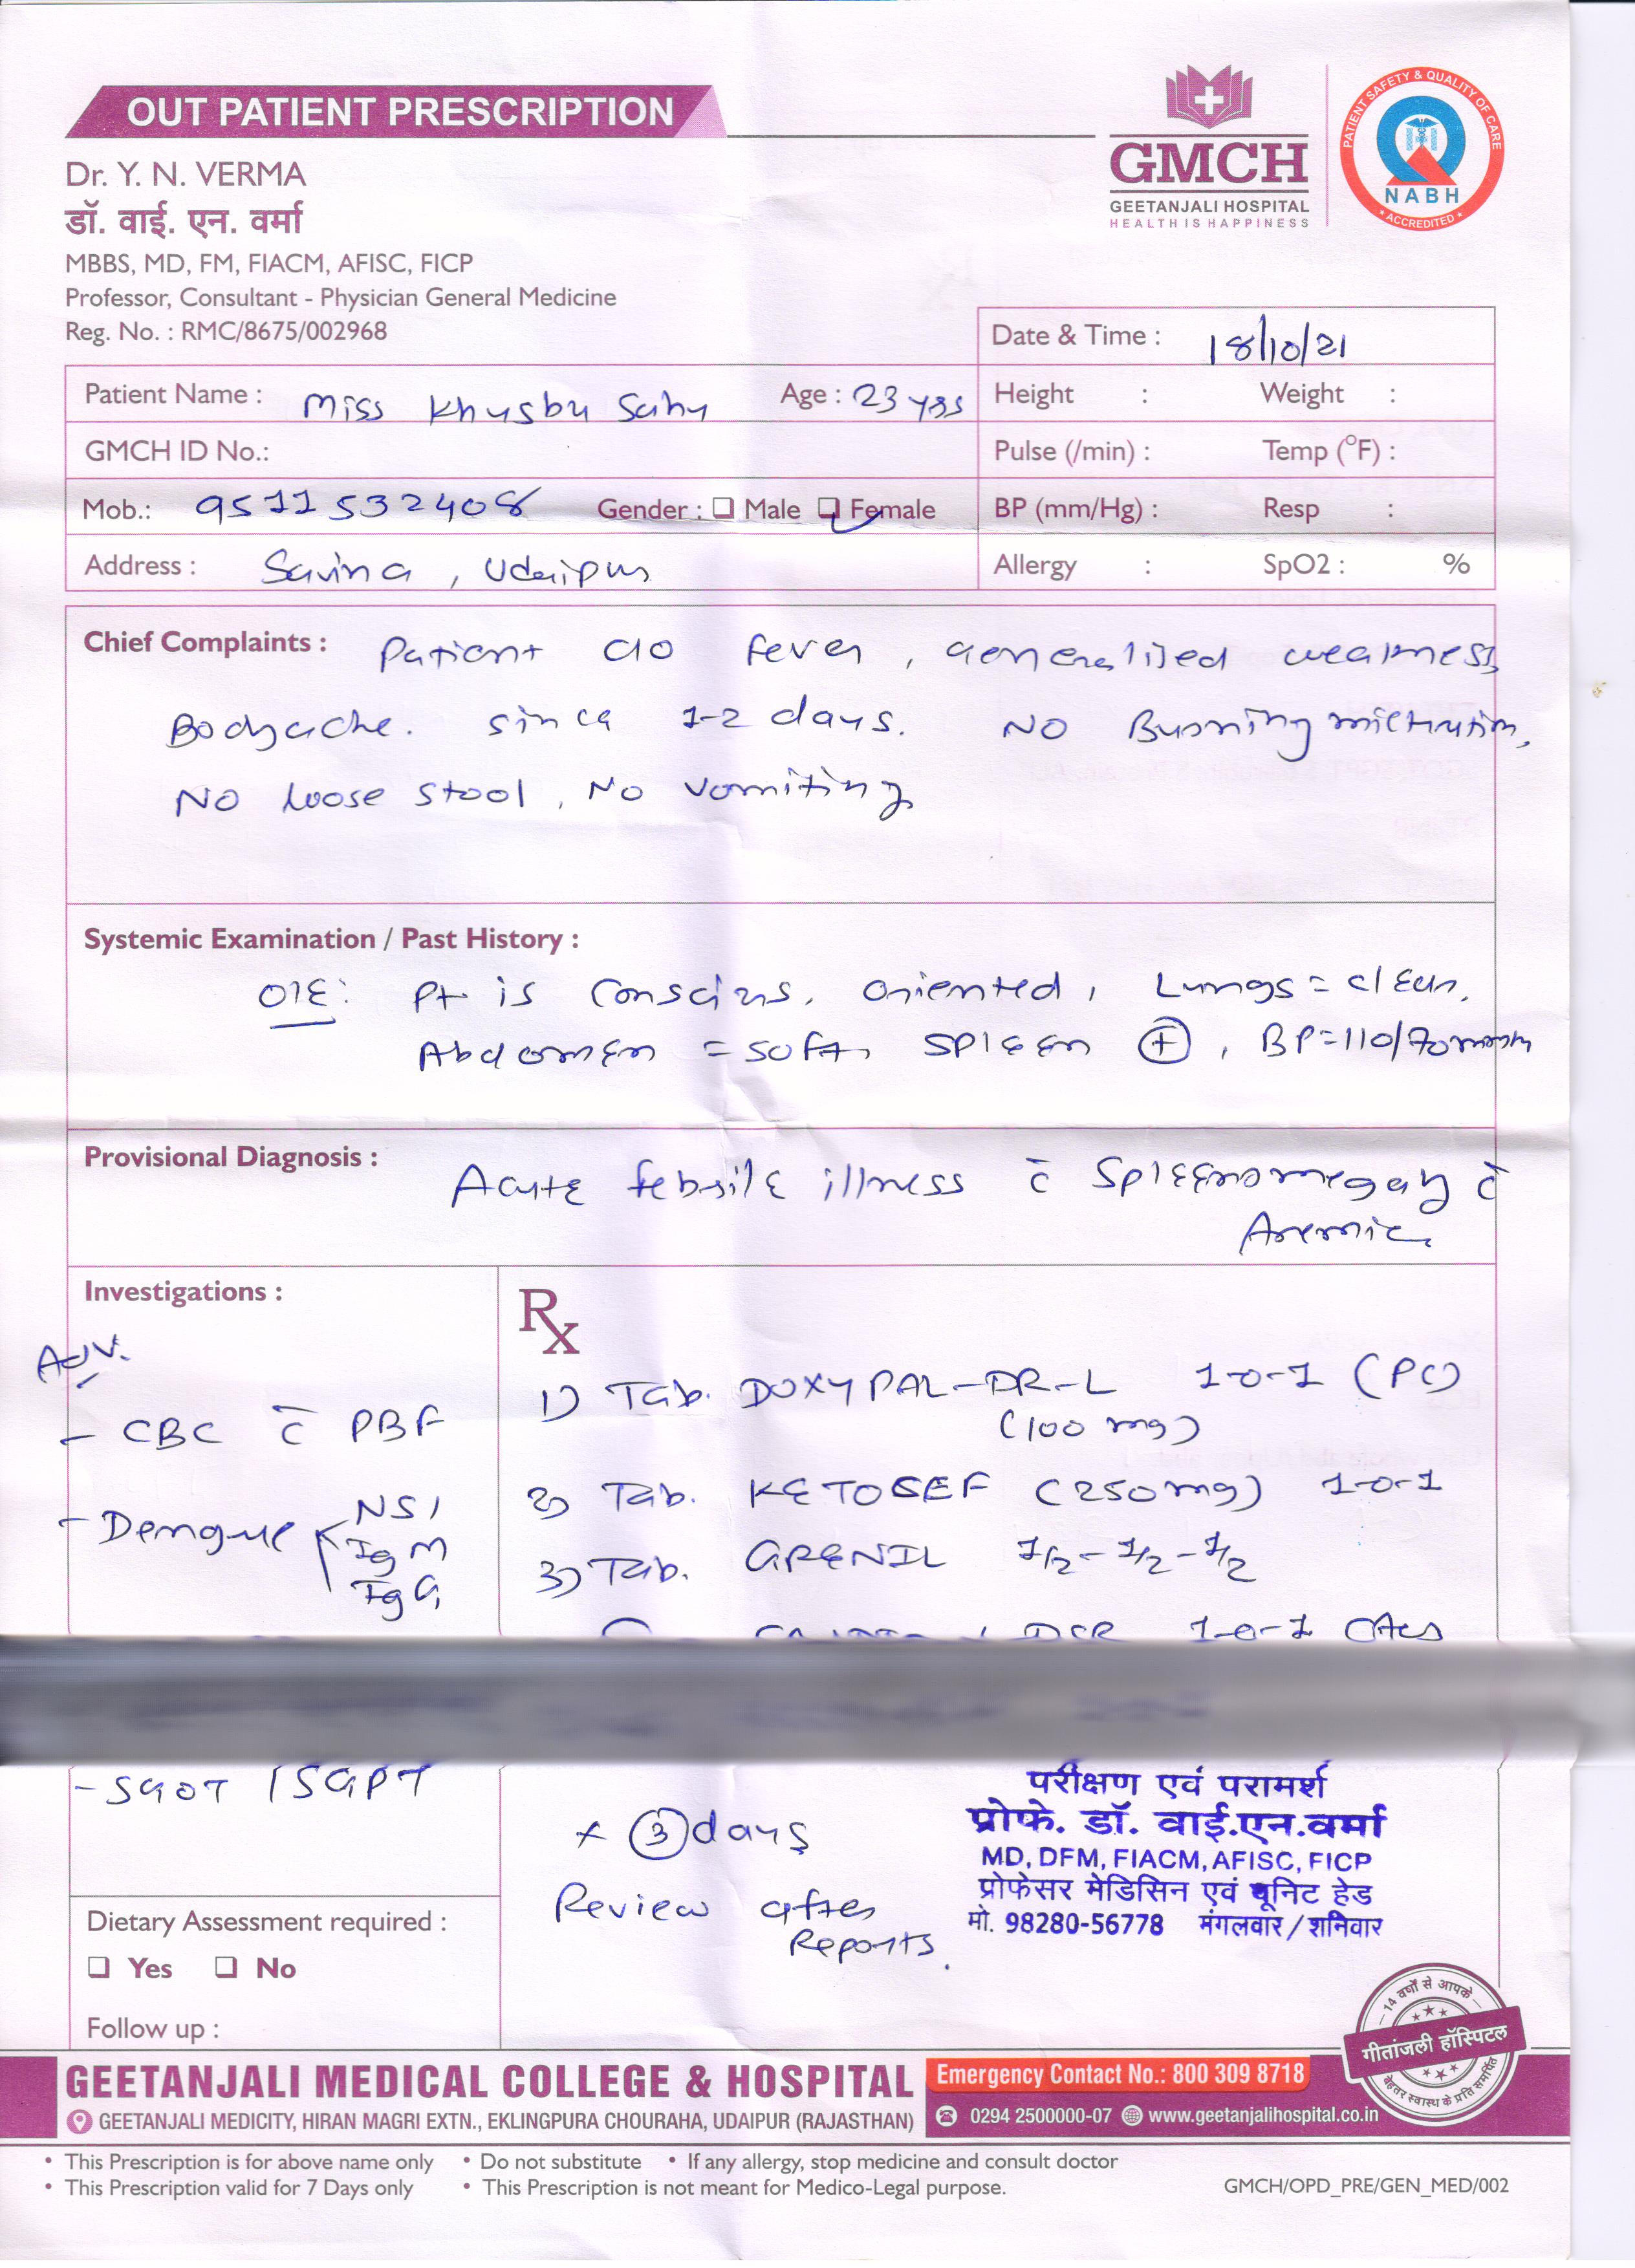 OUT PATIENT PRESCRIPTION
GMCH
GEETANJALI HOSPITAL
HEALTH IS HAPPINESS
PATIENT SAFETY & QUALITY OF CARE
NABH
ACCREDITED
Dr. Y. N. VERMA
डॉ. वाई. एन. वर्मा
MBBS, MD, FM, FIACM, AFISC, FICP
Professor, Consultant - Physician General Medicine
Reg. No. : RMC/8675/002968
Date & Time : 18/10/21
Patient Name : Miss Khusbu Sahu Age : 23 yrs
Height : Weight :
GMCH ID No.:
Pulse (/min) : Temp (°F) :
Mob.: 9511532408 Gender : ❑ Male ❑ Female
BP (mm/Hg) : Resp :
Address : Savina, Udaipur
Allergy : SpO2 : %
Chief Complaints : Patient c/o fever, generalised weakness
Bodyache. since 1-2 days. NO Burning micturition,
NO Loose stool, No vomiting
Systemic Examination / Past History :
O/E: Pt is conscious, oriented, Lungs = clear,
Abdomen = soft, SPLEEN +, BP=110/70
Provisional Diagnosis : Acute febrile illness c̄ Spleenomegaly c̄
Anemia
Investigations :
Rx
Adv.
- CBC c̄ PBF
- Dengue NS1
IgM
IgG
1) Tab. DOXYPAL-DR-L 1-0-1 (PC)
(100 mg)
2) Tab. KETOSEF (250mg) 1-0-1
3) Tab. GRENIL 1/2-1/2-1/2
DSR 1-0-1
- SGOT / SGPT
x 3 days
Review after
Reports.
परीक्षण एवं परामर्श
प्रोफे. डॉ. वाई.एन.वर्मा
MD, DFM, FIACM, AFISC, FICP
प्रोफेसर मेडिसिन एवं यूनिट हेड
मो. 98280-56778 मंगलवार/शनिवार
Dietary Assessment required :
❑ Yes ❑ No
Follow up :
14 वर्षों से आपके
गीतांजली हॉस्पिटल
बेहतर स्वास्थ के प्रति समर्पित
GEETANJALI MEDICAL COLLEGE & HOSPITAL
Emergency Contact No.: 800 309 8718
GEETANJALI MEDICITY, HIRAN MAGRI EXTN., EKLINGPURA CHOURAHA, UDAIPUR (RAJASTHAN)
0294 2500000-07 www.geetanjalihospital.co.in
• This Prescription is for above name only • Do not substitute • If any allergy, stop medicine and consult doctor
• This Prescription valid for 7 Days only • This Prescription is not meant for Medico-Legal purpose.
GMCH/OPD_PRE/GEN_MED/002